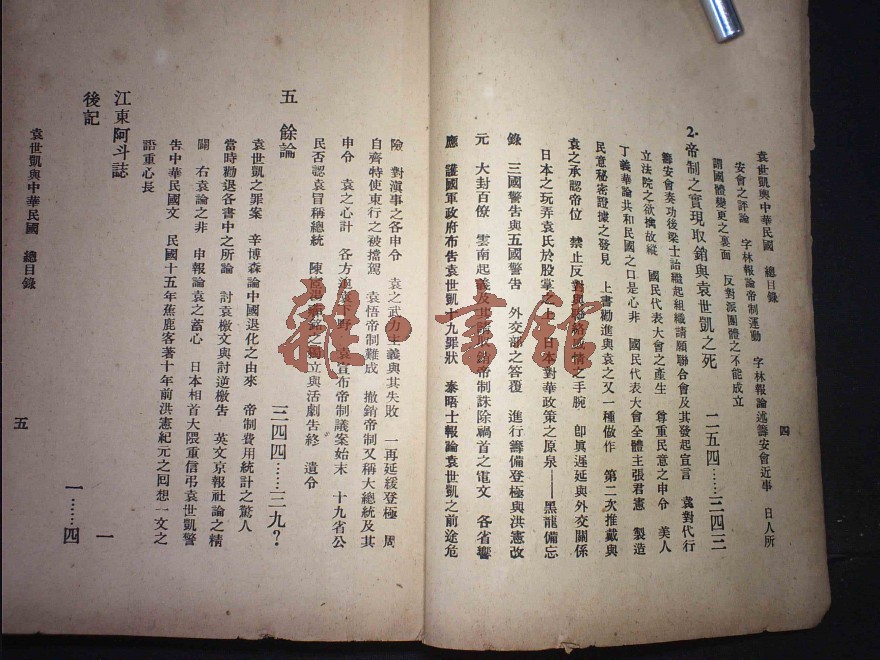 袁世凱與中華民國　總目錄
四
安會之評論　字林報論帝制運動　字林報論述籌安會近事　日人所
謂國體變更之裏面　反對派團體之不能成立
2. 帝制之實現取銷與袁世凱之死　二五四……三四三
籌安會奏功後梁士詒繼起組織請願聯合會及其發起宣言　袁對代行
立法院之欲擒故縱　國民代表大會之產生　尊重民意之申令　美人
丁義華論共和民國之口是心非　國民代表大會全體主張君憲　製造
民意秘密證據之發見　上書勸進與袁之又一種做作　第二次推戴與
袁之承認帝位　禁止反對與　感情之手腕　卽眞遲延與外交關係
日本之玩弄袁氏於股掌之上　日本對華政策之原泉——黑龍備忘
錄　三國警告與五國警告　外交部之答覆　進行籌備登極與洪憲改
元　大封百僚　雲南起義及其請取銷帝制誅除禍首之電文　各省響
應　護國軍政府布告袁世凱十九罪狀　泰晤士報論袁世凱之前途危
險　對滇事之各申令　袁之武力主義與其失敗　一再延緩登極　周
自齊特使東行之被擋駕　袁悟帝制難成　撤銷帝制又稱大總統及其
申令　袁之心計　各方　袁下野　袁宣布帝制議案始末　十九省公
民否認袁冒稱總統　陳宧湯薌銘之獨立與活劇告終　遺令
五　餘論　三四四……三九？
袁世凱之罪案　辛博森論中國退化之由來　帝制費用統計之驚人
當時勸退各書中之所論　討袁檄文與討逆檄告　英文京報社論之精
闢　右袁論之非　申報論袁之蓄心　日本相首大隈重信弔袁世凱警
告中華民國文　民國十五年蕉鹿客著十年前洪憲紀元之囘想一文之
語重心長
江東阿斗誌　一
後記　一……四
袁世凱與中華民國　總目錄
五
雜·書館